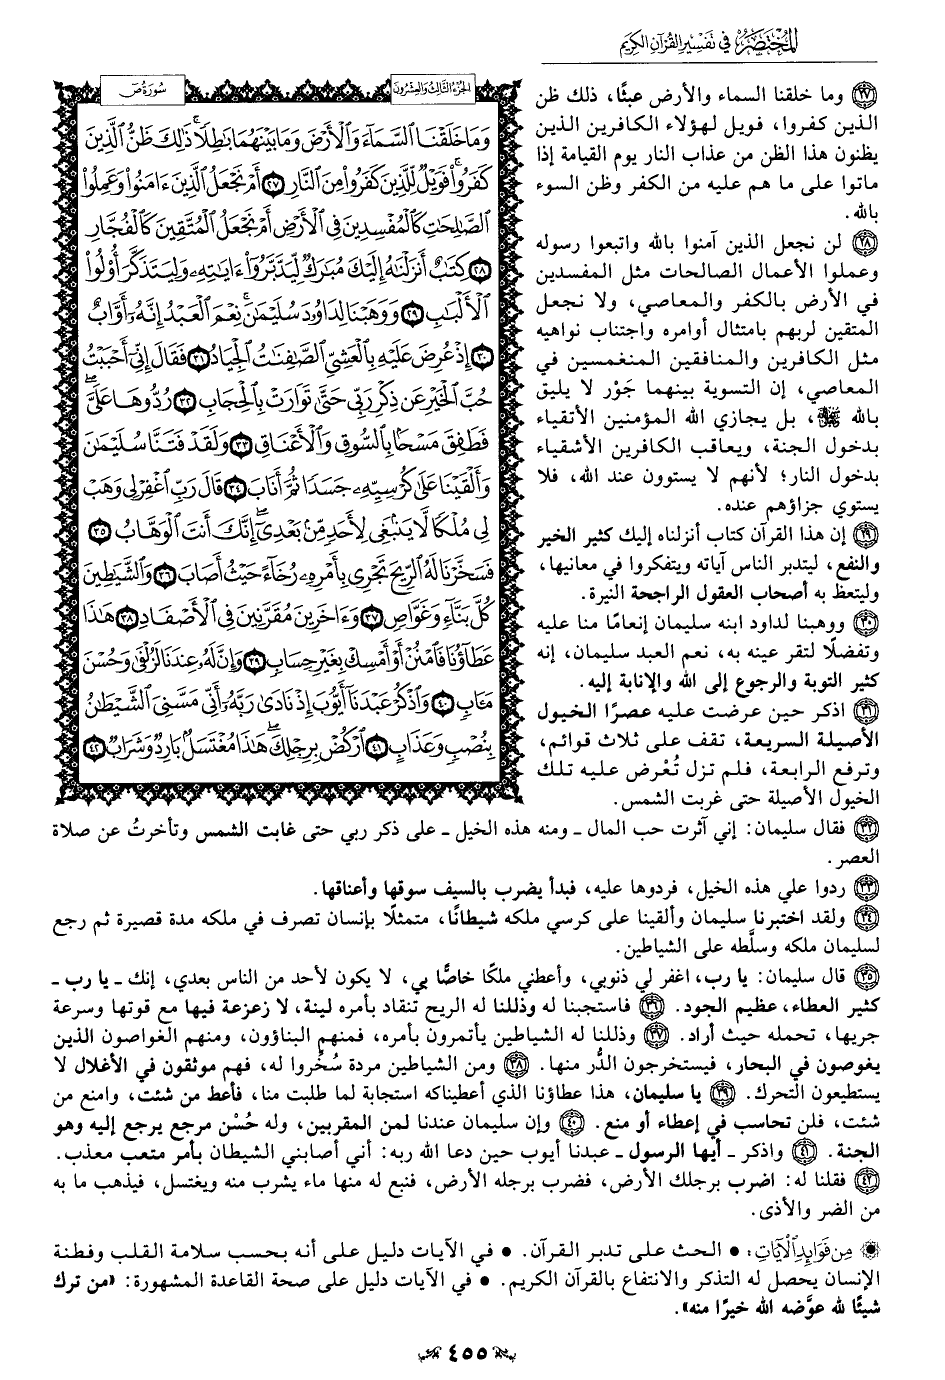 المختصر في تفسير القرآن الكريم
الجزء الثالث والعشرون
سورة ص
وَمَا خَلَقْنَا السَّمَاءَ وَالْأَرْضَ وَمَا بَيْنَهُمَا بَاطِلًا ذَٰلِكَ ظَنُّ الَّذِينَ
كَفَرُوا فَوَيْلٌ لِّلَّذِينَ كَفَرُوا مِنَ النَّارِ ٢٧ أَمْ نَجْعَلُ الَّذِينَ ءَامَنُوا وَعَمِلُوا
الصَّالِحَاتِ كَالْمُفْسِدِينَ فِي الْأَرْضِ أَمْ نَجْعَلُ الْمُتَّقِينَ كَالْفُجَّارِ
٢٨ كِتَابٌ أَنزَلْنَاهُ إِلَيْكَ مُبَارَكٌ لِّيَدَّبَّرُوا ءَايَاتِهِ وَلِيَتَذَكَّرَ أُولُوا
الْأَلْبَابِ ٢٩ وَوَهَبْنَا لِدَاوُدَ سُلَيْمَانَ نِعْمَ الْعَبْدُ إِنَّهُ أَوَّابٌ
٣٠ إِذْ عُرِضَ عَلَيْهِ بِالْعَشِيِّ الصَّافِنَاتُ الْجِيَادُ ٣١ فَقَالَ إِنِّي أَحْبَبْتُ
حُبَّ الْخَيْرِ عَن ذِكْرِ رَبِّي حَتَّىٰ تَوَارَتْ بِالْحِجَابِ ٣٢ رُدُّوهَا عَلَيَّ
فَطَفِقَ مَسْحًا بِالسُّوقِ وَالْأَعْنَاقِ ٣٣ وَلَقَدْ فَتَنَّا سُلَيْمَانَ
وَأَلْقَيْنَا عَلَىٰ كُرْسِيِّهِ جَسَدًا ثُمَّ أَنَابَ ٣٤ قَالَ رَبِّ اغْفِرْ لِي وَهَبْ
لِي مُلْكًا لَّا يَنبَغِي لِأَحَدٍ مِّن بَعْدِي إِنَّكَ أَنتَ الْوَهَّابُ ٣٥
فَسَخَّرْنَا لَهُ الرِّيحَ تَجْرِي بِأَمْرِهِ رُخَاءً حَيْثُ أَصَابَ ٣٦ وَالشَّيَاطِينَ
كُلَّ بَنَّاءٍ وَغَوَّاصٍ ٣٧ وَءَاخَرِينَ مُقَرَّنِينَ فِي الْأَصْفَادِ ٣٨ هَٰذَا
عَطَاؤُنَا فَامْنُنْ أَوْ أَمْسِكْ بِغَيْرِ حِسَابٍ ٣٩ وَإِنَّ لَهُ عِندَنَا لَزُلْفَىٰ وَحُسْنَ
مَـَٔابٍ ٤٠ وَاذْكُرْ عَبْدَنَا أَيُّوبَ إِذْ نَادَىٰ رَبَّهُ أَنِّي مَسَّنِيَ الشَّيْطَانُ
بِنُصْبٍ وَعَذَابٍ ٤١ ارْكُضْ بِرِجْلِكَ هَٰذَا مُغْتَسَلٌ بَارِدٌ وَشَرَابٌ ٤٢
٢٧ وما خلقنا السماء والأرض عبثًا، ذلك ظن
الذين كفروا، فويل لهؤلاء الكافرين الذين
يظنون هذا الظن من عذاب النار يوم القيامة إذا
ماتوا على ما هم عليه من الكفر وظن السوء
بالله.
٢٨ لن نجعل الذين آمنوا بالله واتبعوا رسوله
وعملوا الأعمال الصالحات مثل المفسدين
في الأرض بالكفر والمعاصي، ولا نجعل
المتقين لربهم بامتثال أوامره واجتناب نواهيه
مثل الكافرين والمنافقين المنغمسين في
المعاصي، إن التسوية بينهما جَوْر لا يليق
بالله ﷻ، بل يجازي الله المؤمنين الأتقياء
بدخول الجنة، ويعاقب الكافرين الأشقياء
بدخول النار؛ لأنهم لا يستوون عند الله، فلا
يستوي جزاؤهم عنده.
٢٩ إن هذا القرآن كتاب أنزلناه إليك كثير الخير
والنفع، ليتدبر الناس آياته ويتفكروا في معانيها،
وليتعظ به أصحاب العقول الراجحة النيرة.
٣٠ ووهبنا لداود ابنه سليمان إنعامًا منا عليه
وتفضلًا لتقر عينه به، نعم العبد سليمان، إنه
كثير التوبة والرجوع إلى الله والإنابة إليه.
٣١ اذكر حين عرضت عليه عصرًا الخيول
الأصيلة السريعة، تقف على ثلاث قوائم،
وترفع الرابعة، فلم تزل تُعْرض عليه تلك
الخيول الأصيلة حتى غربت الشمس.
٣٢ فقال سليمان: إني آثرت حب المال ـ ومنه هذه الخيل ـ على ذكر ربي حتى غابت الشمس وتأخرتُ عن صلاة
العصر.
٣٣ ردوا علي هذه الخيل، فردوها عليه، فبدأ يضرب بالسيف سوقها وأعناقها.
٣٤ ولقد اختبرنا سليمان وألقينا على كرسي ملكه شيطانًا، متمثلًا بإنسان تصرف في ملكه مدة قصيرة ثم رجع
لسليمان ملكه وسلَّطه على الشياطين.
٣٥ قال سليمان: يا رب، اغفر لي ذنوبي، وأعطني ملكًا خاصًّا بي، لا يكون لأحد من الناس بعدي، إنك ـ يا رب ـ
كثير العطاء، عظيم الجود. ٣٦ فاستجبنا له وذللنا له الريح تنقاد بأمره لينة، لا زعزعة فيها مع قوتها وسرعة
جريها، تحمله حيث أراد. ٣٧ وذللنا له الشياطين يأتمرون بأمره، فمنهم البناؤون، ومنهم الغواصون الذين
يغوصون في البحار، فيستخرجون الدُّر منها. ٣٨ ومن الشياطين مردة سُخِّروا له، فهم موثقون في الأغلال لا
يستطيعون التحرك. ٣٩ يا سليمان، هذا عطاؤنا الذي أعطيناكه استجابة لما طلبت منا، فأعط من شئت، وامنع من
شئت، فلن تحاسب في إعطاء أو منع. ٤٠ وإن سليمان عندنا لمن المقربين، وله حُسْن مرجع يرجع إليه وهو
الجنة. ٤١ واذكر ـ أيها الرسول ـ عبدنا أيوب حين دعا الله ربه: أني أصابني الشيطان بأمر متعب معذب.
٤٢ فقلنا له: اضرب برجلك الأرض، فضرب برجله الأرض، فنبع له منها ماء يشرب منه ويغتسل، فيذهب ما به
من الضر والأذى.
من فوائد الآيات: • الحث على تدبر القرآن. • في الآيات دليل على أنه بحسب سلامة القلب وفطنة
الإنسان يحصل له التذكر والانتفاع بالقرآن الكريم. • في الآيات دليل على صحة القاعدة المشهورة: «من ترك
شيئًا لله عوَّضه الله خيرًا منه».
٤٥٥